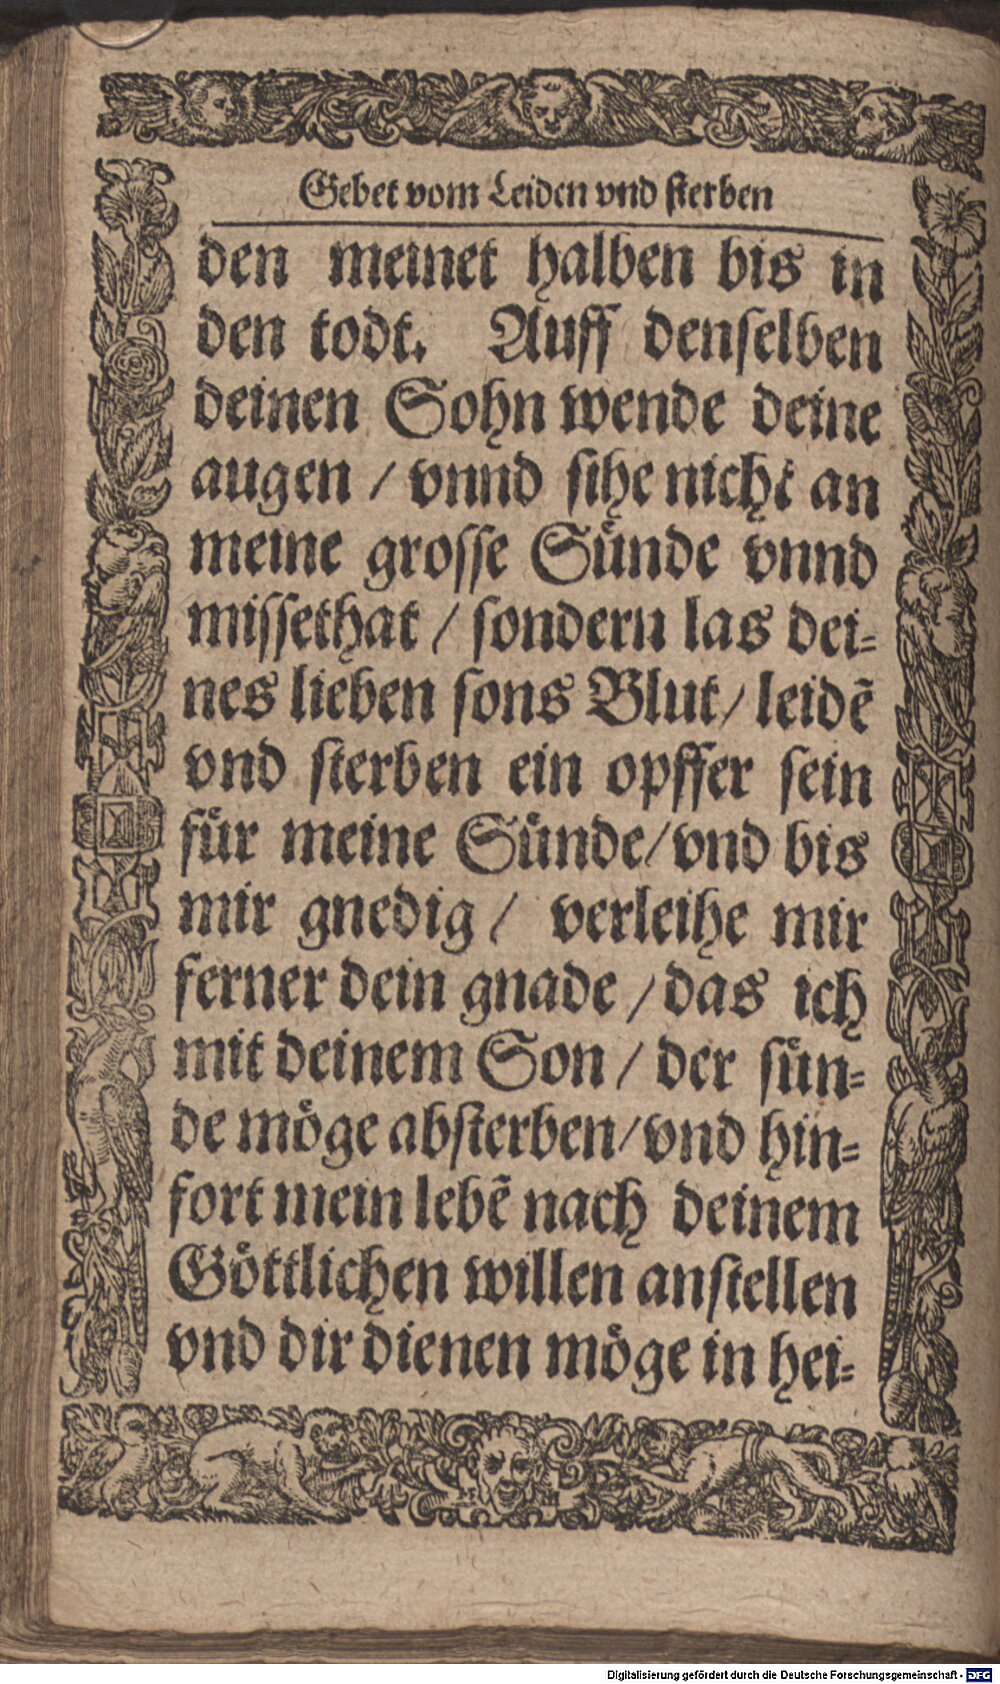 Gebet vom Leiden vnd sterben
den meinet halben bis in
den todt. Auff denselben
deinen Sohn wende deine
augen / vnnd sihe nicht an
meine grosse Suͤnde vnnd
missethat / sondern las dei-
nes lieben sons Blut / leidẽ
vnd sterben ein opffer sein
fuͤr meine Suͤnde / vnd bis
mir gnedig / verleihe mir
ferner dein gnade / das ich
mit deinem Son / der suͤn-
de moͤge absterben / vnd hin-
fort mein lebẽ nach deinem
Goͤttlichen willen anstellen
vnd dir dienen moͤge in hei-
Digitalisierung gefördert durch die Deutsche Forschungsgemeinschaft - DFG